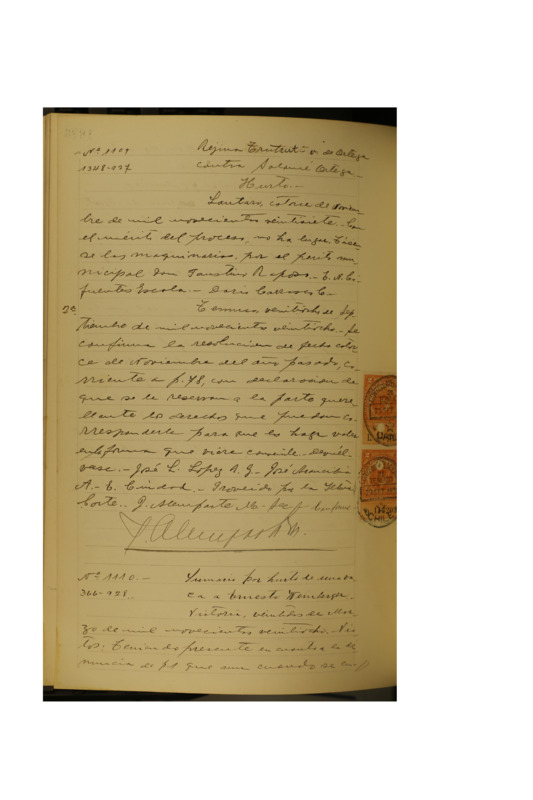 Nº 1109
1348-127
Regina v. de Ortega
contra Ortega.-
Hurto.-
Lautaro, catorce de Noviem
bre de mil novecientos veintisiete.- Con
el mérito del proceso, no ha lugar. Táse
se las maquinarias, por el perito mu
nicipal don Faustino Raposo.- E. N. Ci
fuentes Escala.- Darío Carrasco C.-
2ª
Temuco, veintiocho de Sep
tiembre de mil novecientos veintiocho.- Se
confirma la resolucion de fecha cator
ce de Noviembre del año pasado, co
rriente a f. 48, con declaracion de
que se le reservan a la parte quere
llante los derechos que puedan co
rresponderle para que los haga valer
en la forma que viere convenir. Devuél-
vase.- José L. Lopez A. G.- José
A.- C. Ciudad.- Proveido por la Iltma
Corte.- J. Alemparte M. Sec
J. Alemparte M.
Nº 1110.-
366-928.
Sumario por hurto de una va
ca a Ernesto Weinberger.-
Victoria, veintidos de Mar
zo de mil novecientos veintiocho. Vis
tos: Teniendo presente en cuenta la de
nuncia de f1 que aun cuando se